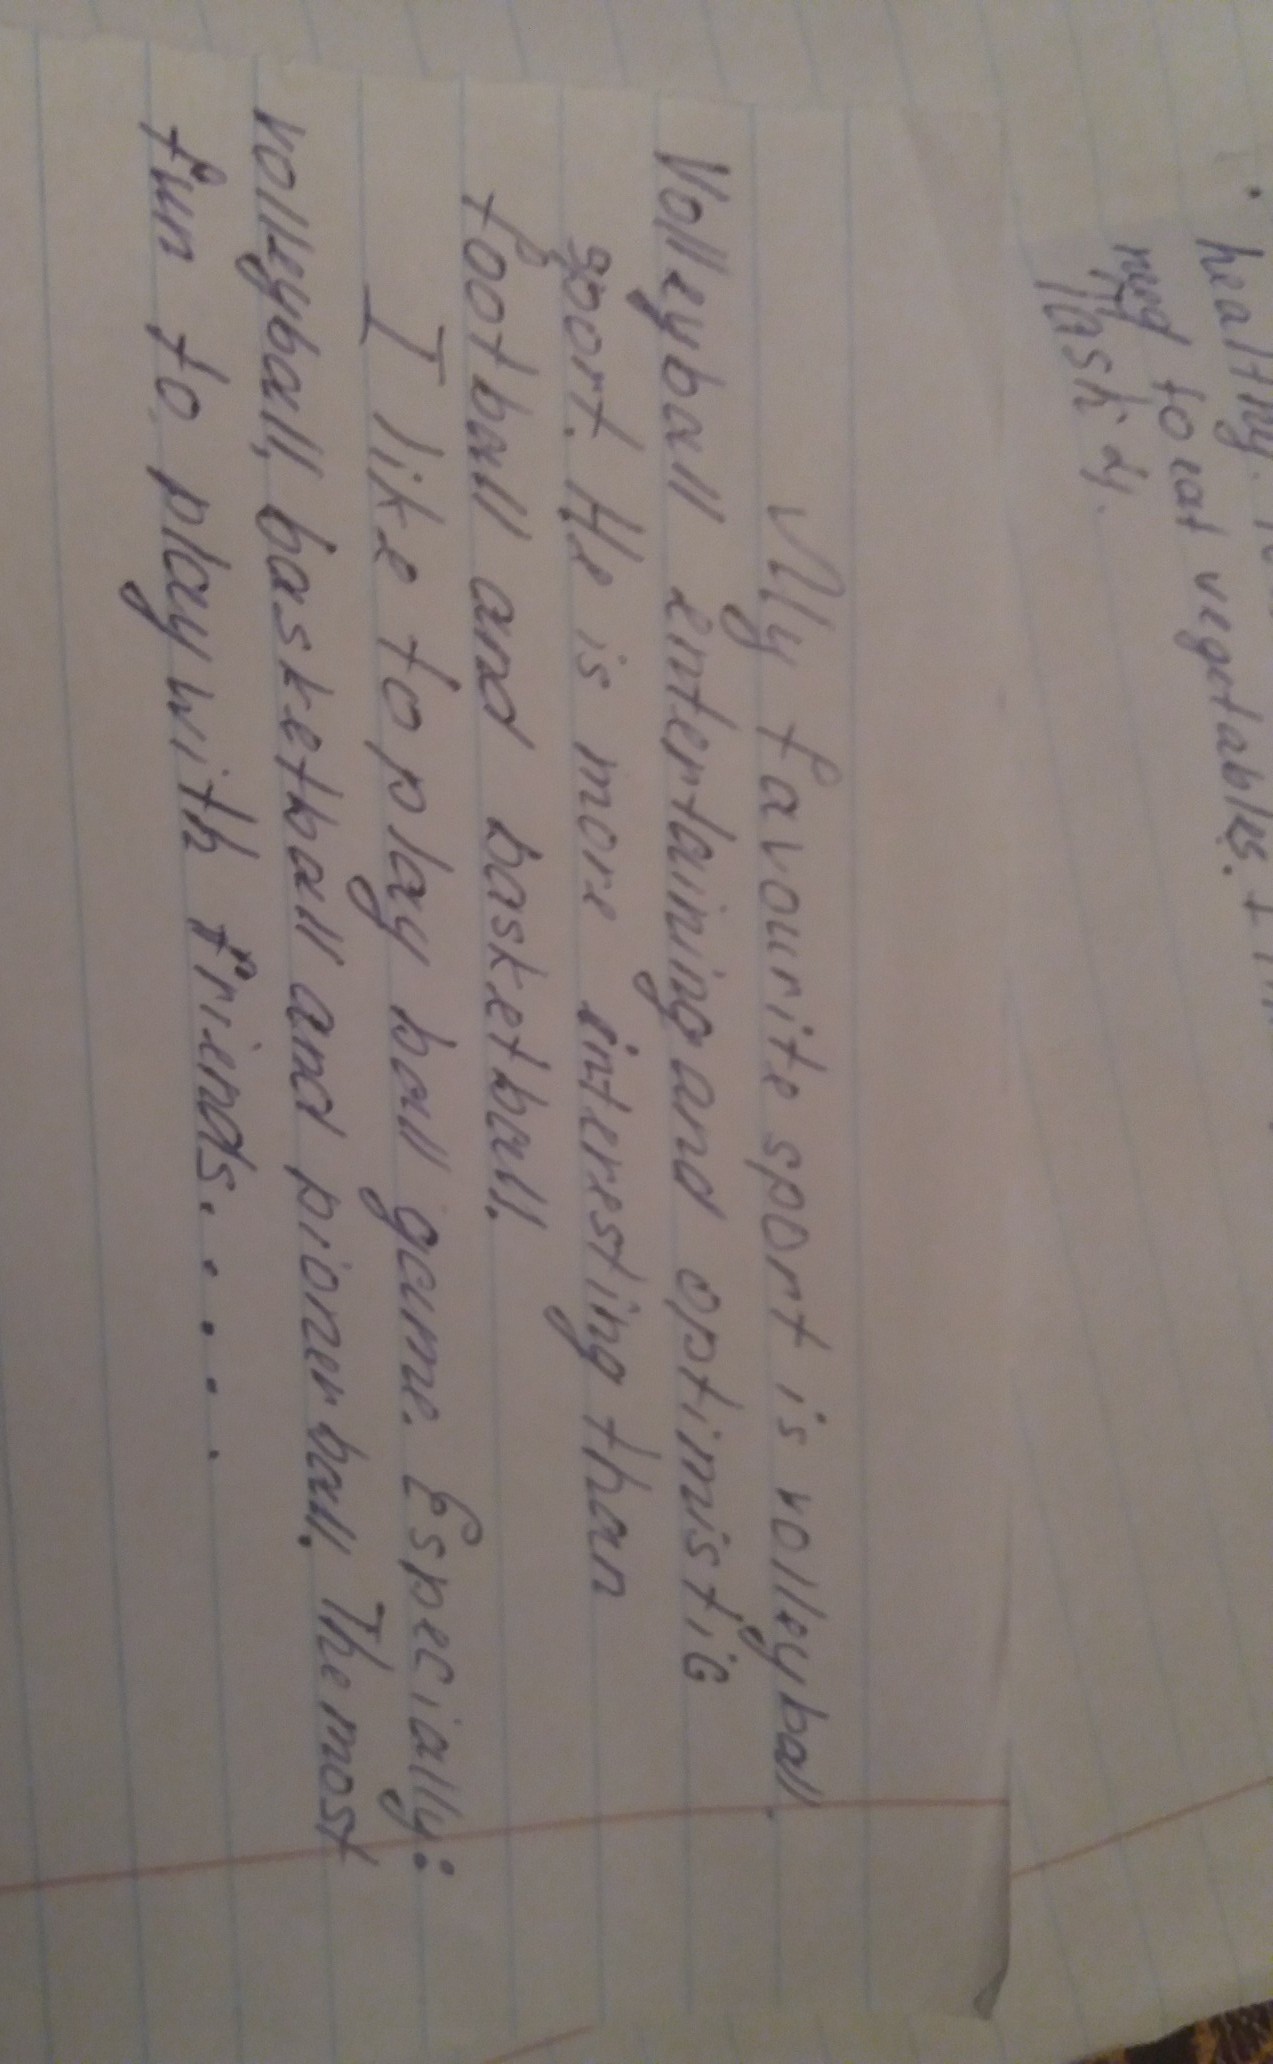 healthy.
need to eat vegetables. I
Task 24.
My favourite sport is volleyball.
Volleyball entertaining and optimistic
sport. He is more interesting than
football and basketball.
I like to play ball game. Especially:
volleyball, basketball and pionerball. The most
fun to play with friends. . . . .